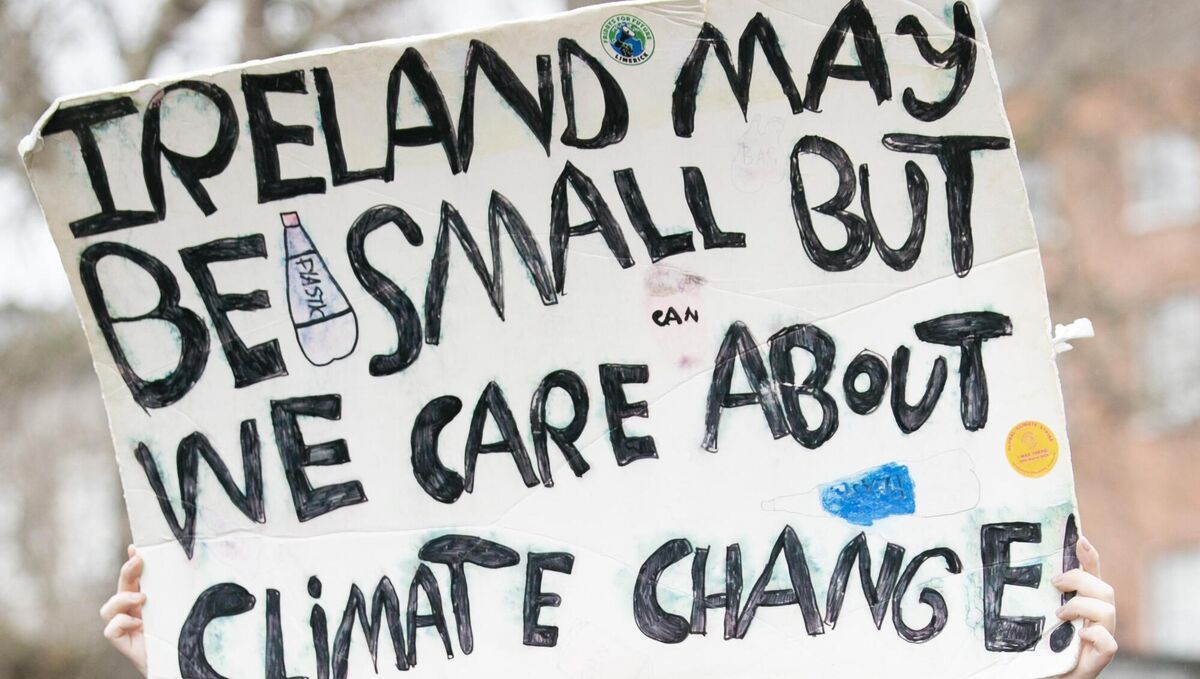 FRIDAYS FOR FUTURE
LIMERICK
IRELAND MAY
BE SMALL BUT
CAN
WE CARE ABOUT
CLIMATE CHANGE!